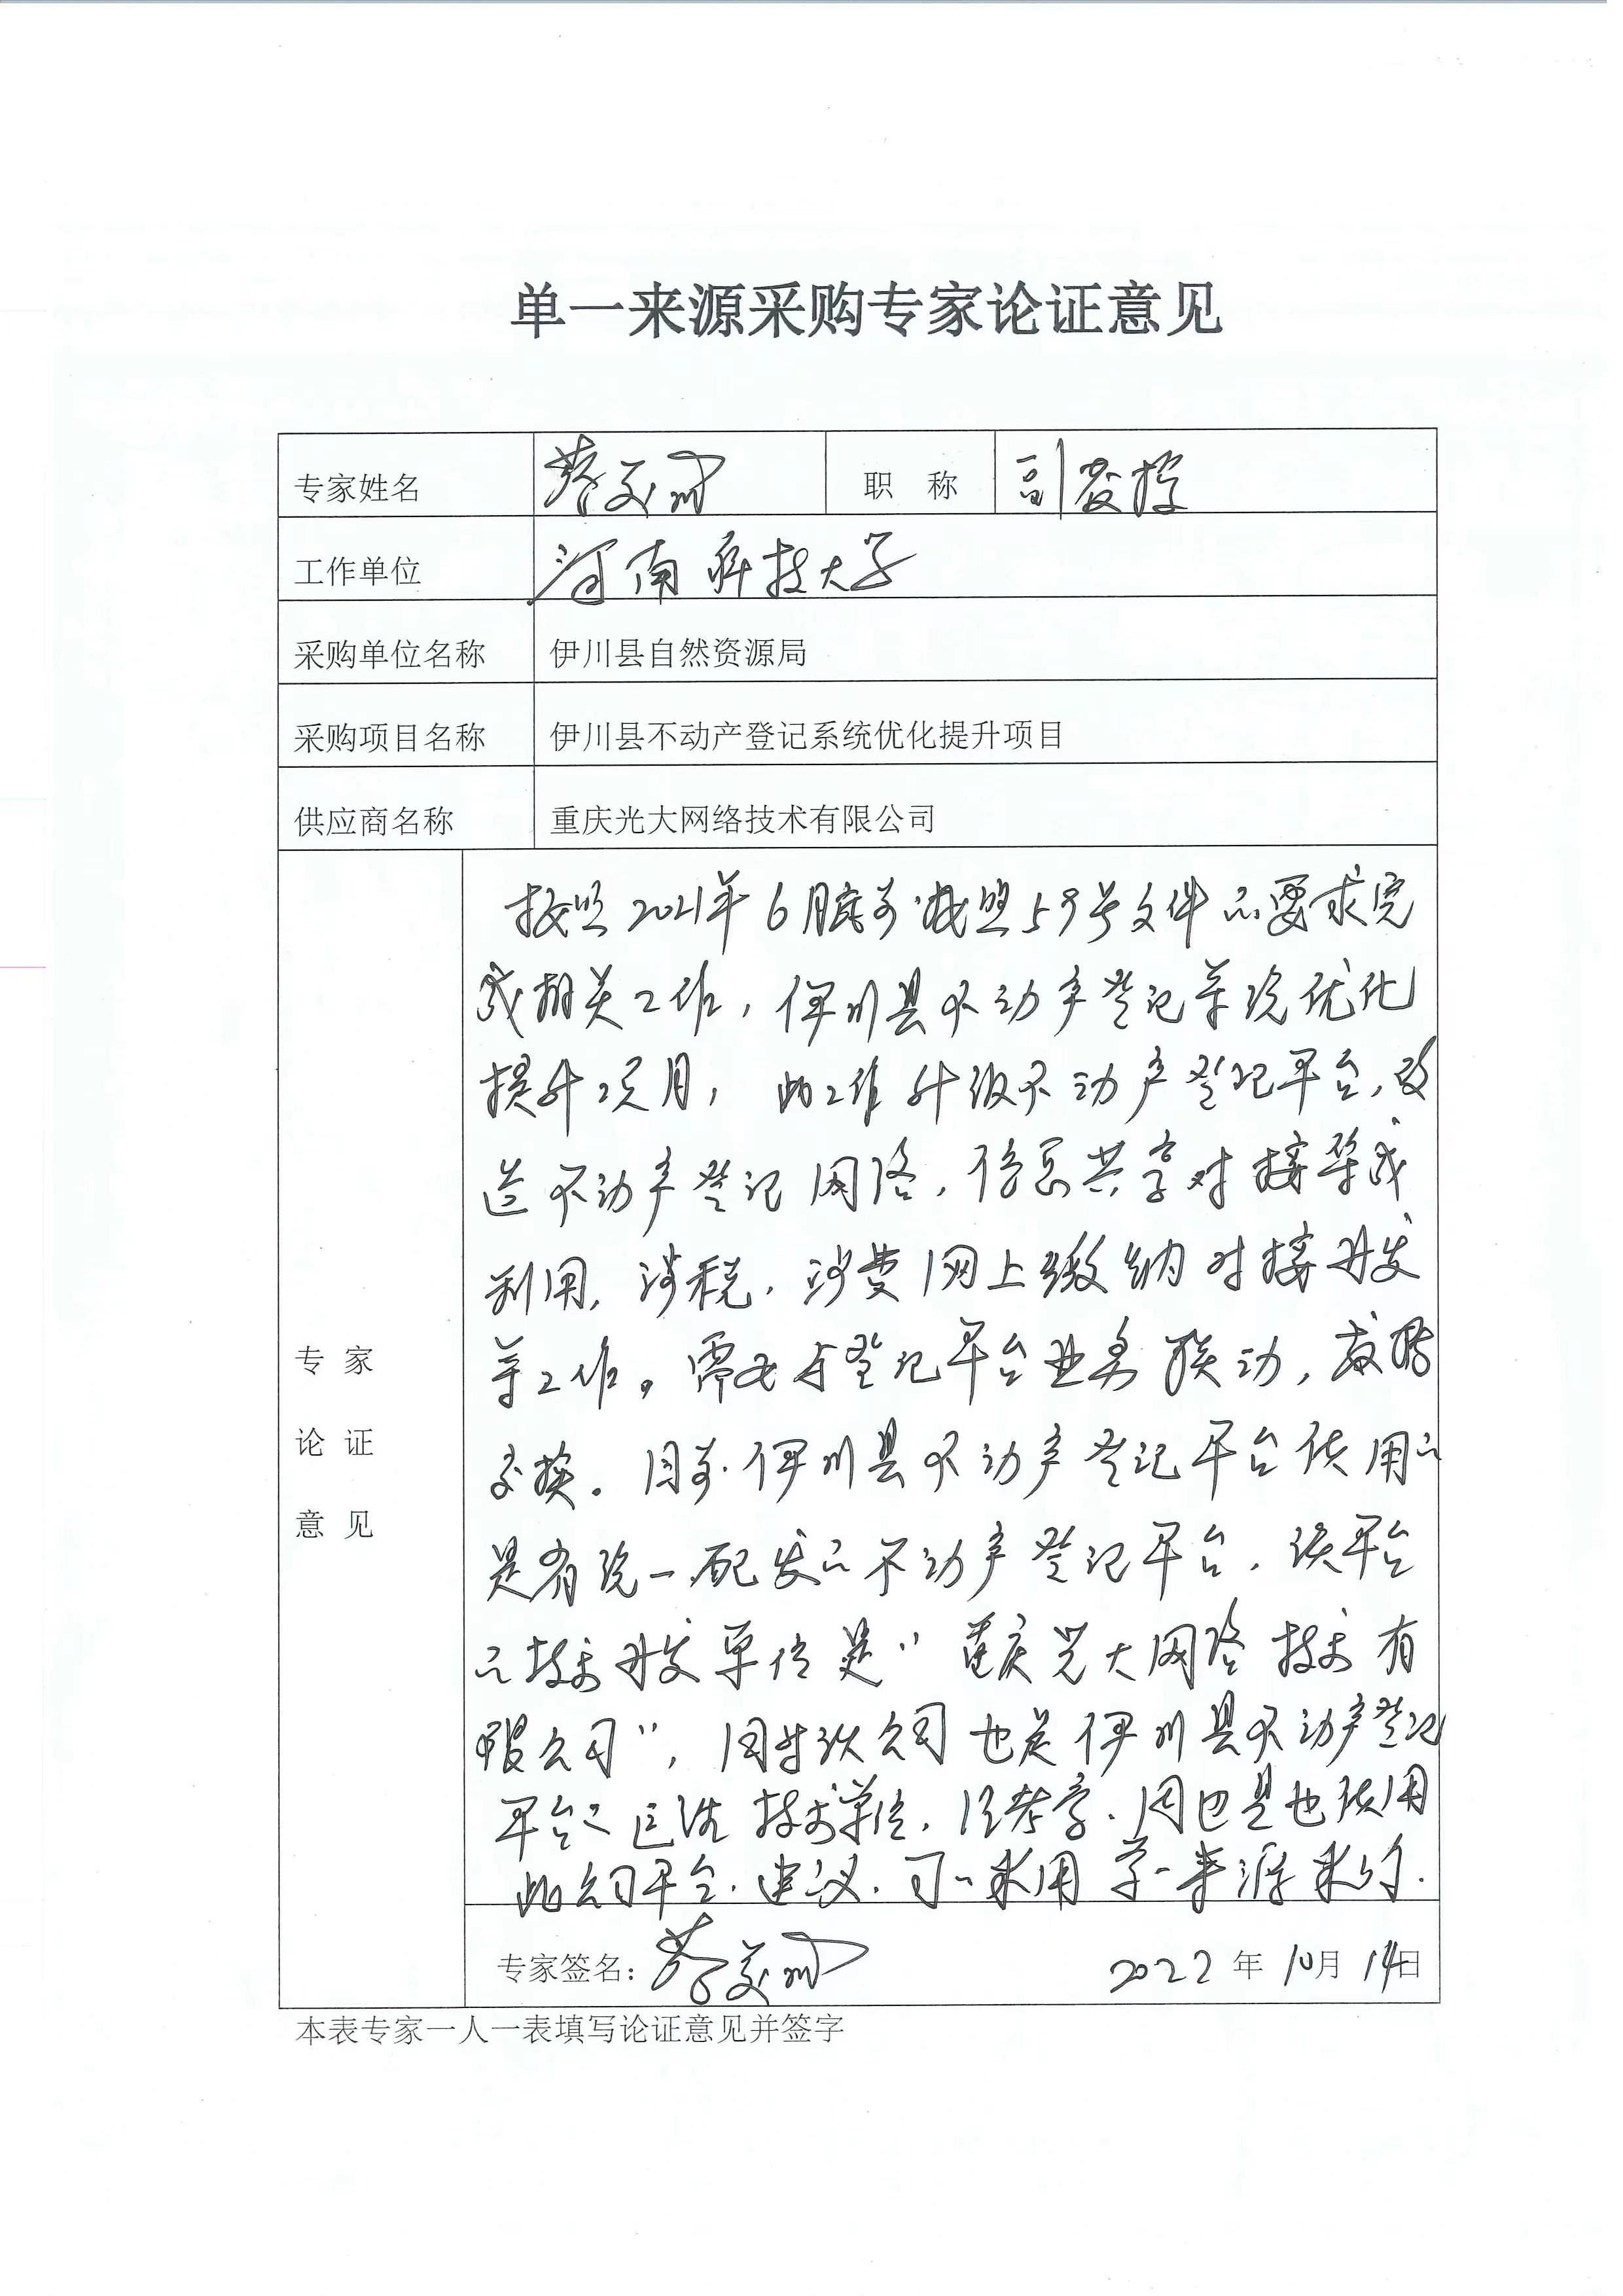 单一来源采购专家论证意见
专家姓名 蔡 职 称 副教授
工作单位 河南科技大学
采购单位名称 伊川县自然资源局
采购项目名称 伊川县不动产登记系统优化提升项目
供应商名称 重庆光大网络技术有限公司
专 家
论 证
意 见
按照2021年6月底前 59号文件的要求完
成相关工作，伊川县不动产登记系统优化
提升项目，此工作升级不动产登记平台，改
造不动产登记网络，信息共享对接集成
利用，涉税，涉费网上缴纳对接开发
等工作。需要与登记平台业务联动，数据
交换。目前伊川县不动产登记平台使用的
是省统一配发的不动产登记平台，该平台
的技术开发单位是"重庆光大网络技术有
限公司"，同时该公司也是伊川县不动产登记
平台之 技术单位，经考察，周边县也使用
此公司平台，建议，可以采用单一来源采购．
专家签名： 蔡 2022 年 10月 14日
本表专家一人一表填写论证意见并签字